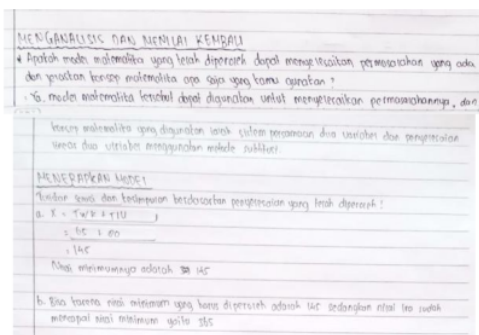 MENGANALISIS DAN MENILAI KEMBALI
* Apakah model matematika yang telah diperoleh dapat menyelesaikan permasalahan yang ada
dan jelaskan konsep matematika apa saja yang kamu gunakan ?
- Ya, model matematika tersebut dapat digunakan untuk menyelesaikan permasalahannya, dan
konsep matematika yang digunakan ialah sistem persamaan dua variabel dan penyelesaian
linear dua variabel menggunakan metode subtitusi
MENERAPKAN MODEL
dan kesimpulan berdasarkan penyelesaian yang telah diperoleh !
a. X = TWK + TIU
= 65 + 80
= 145
Nilai minimumnya adalah 145
b. Bisa karena nilai minimum yang harus diperoleh adalah sedangkan nilai sudah
mencapai nilai minimum yaitu